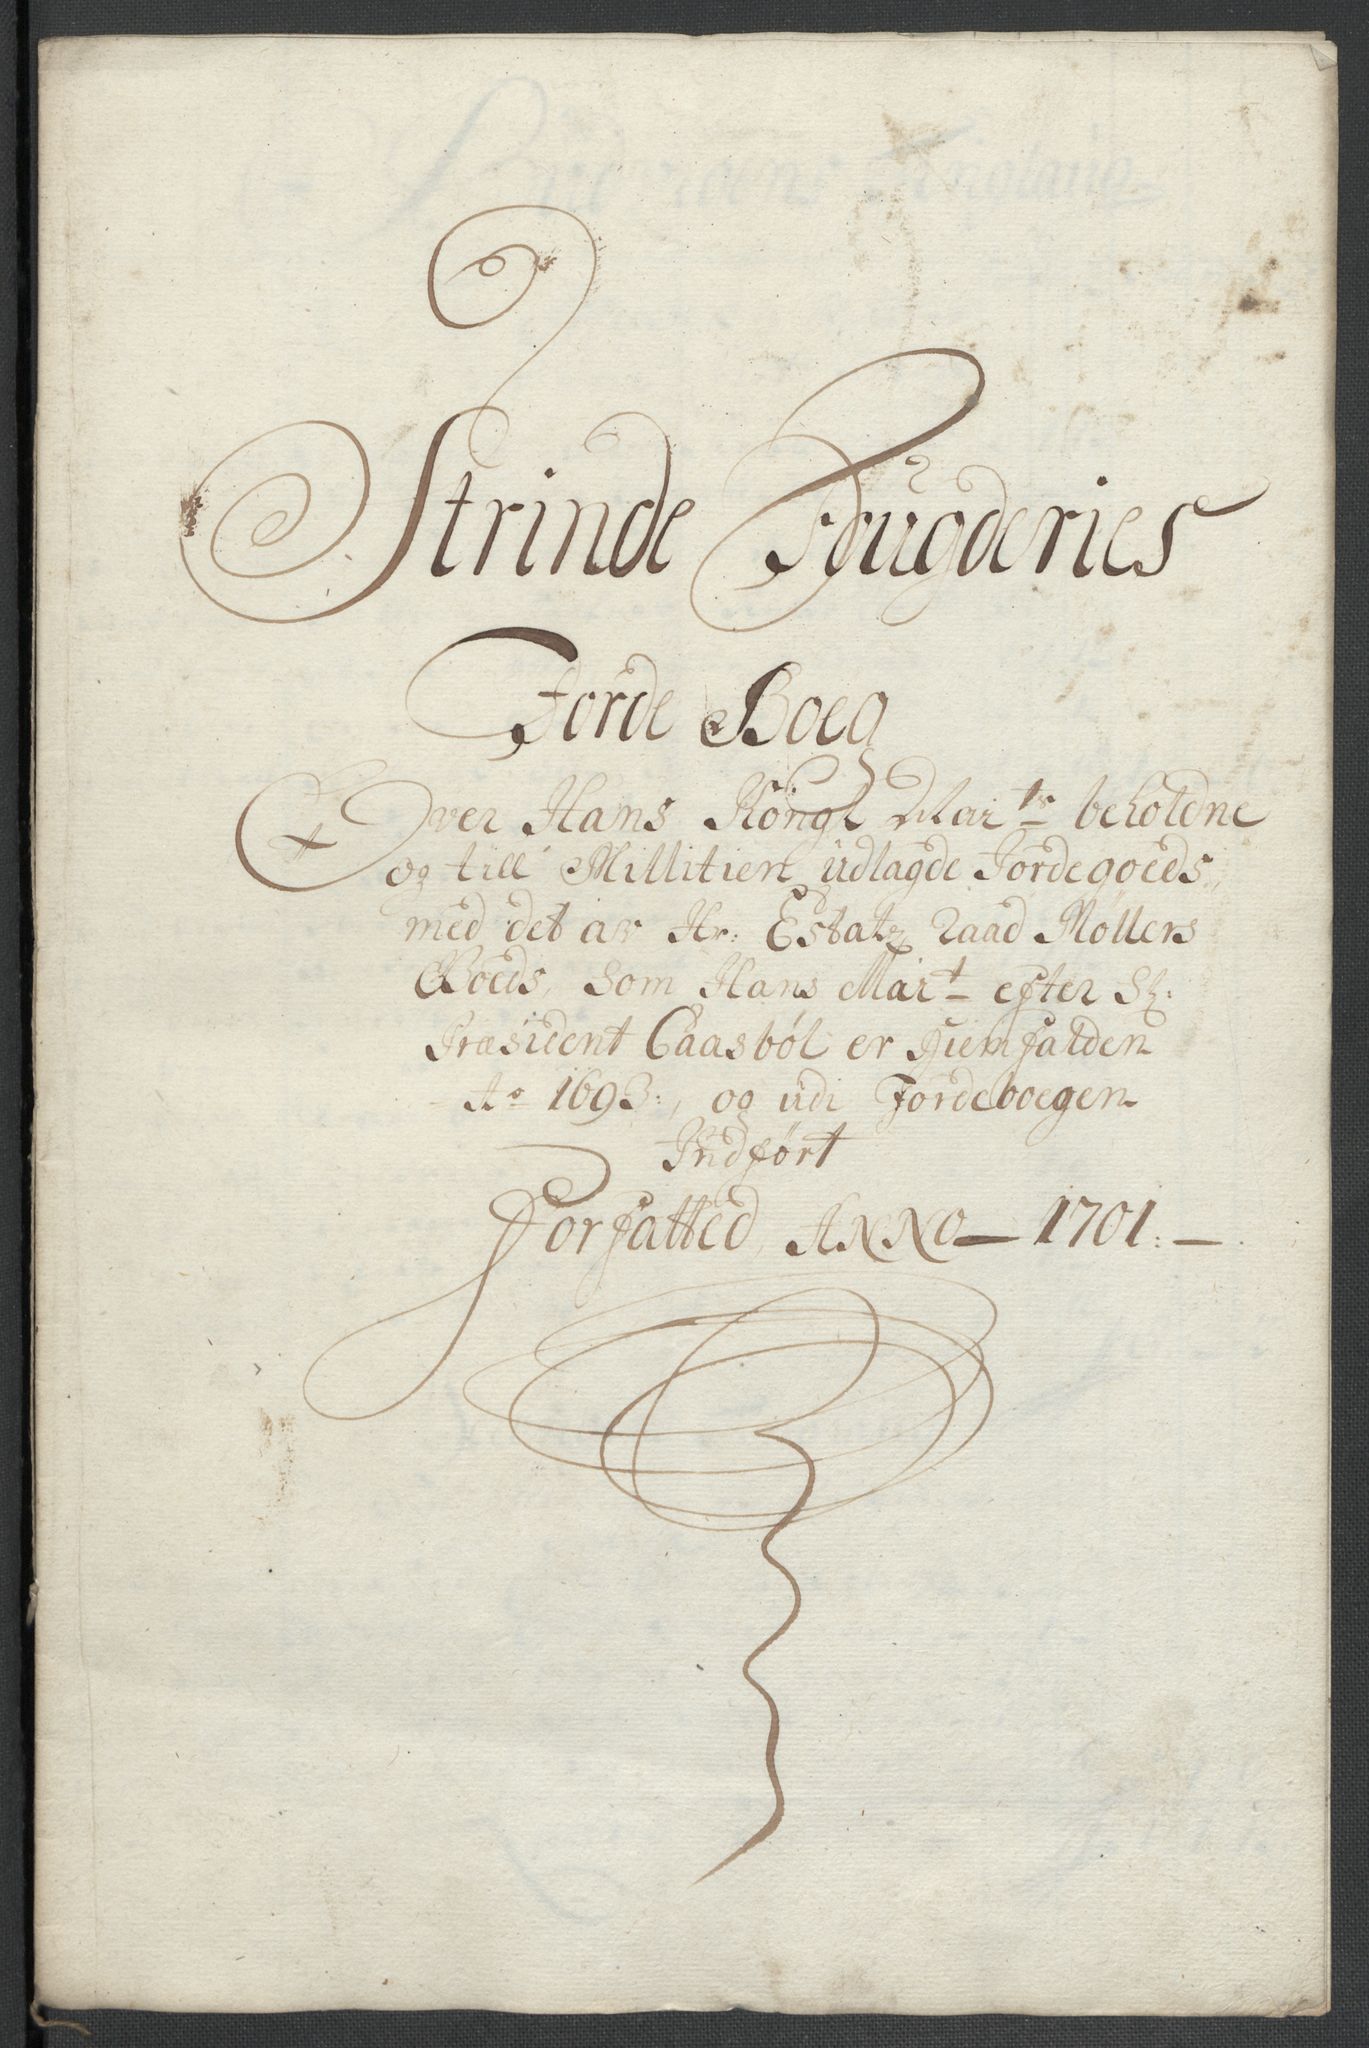 Strinde Fougderies
Jorde Boeg
Over Hans Kongl Mai:ts beholdne
og till Millitien udlagde Jordegoeds,
med det af Hr: Estatz Raad Møllers
Goeds, Som Hans Mai:t efter Sl:
Præsident Caasbøl er hiemfalden
Ao 1693:, og udi Jordeboegen
Indført
Forfatted, ANNO 1701: